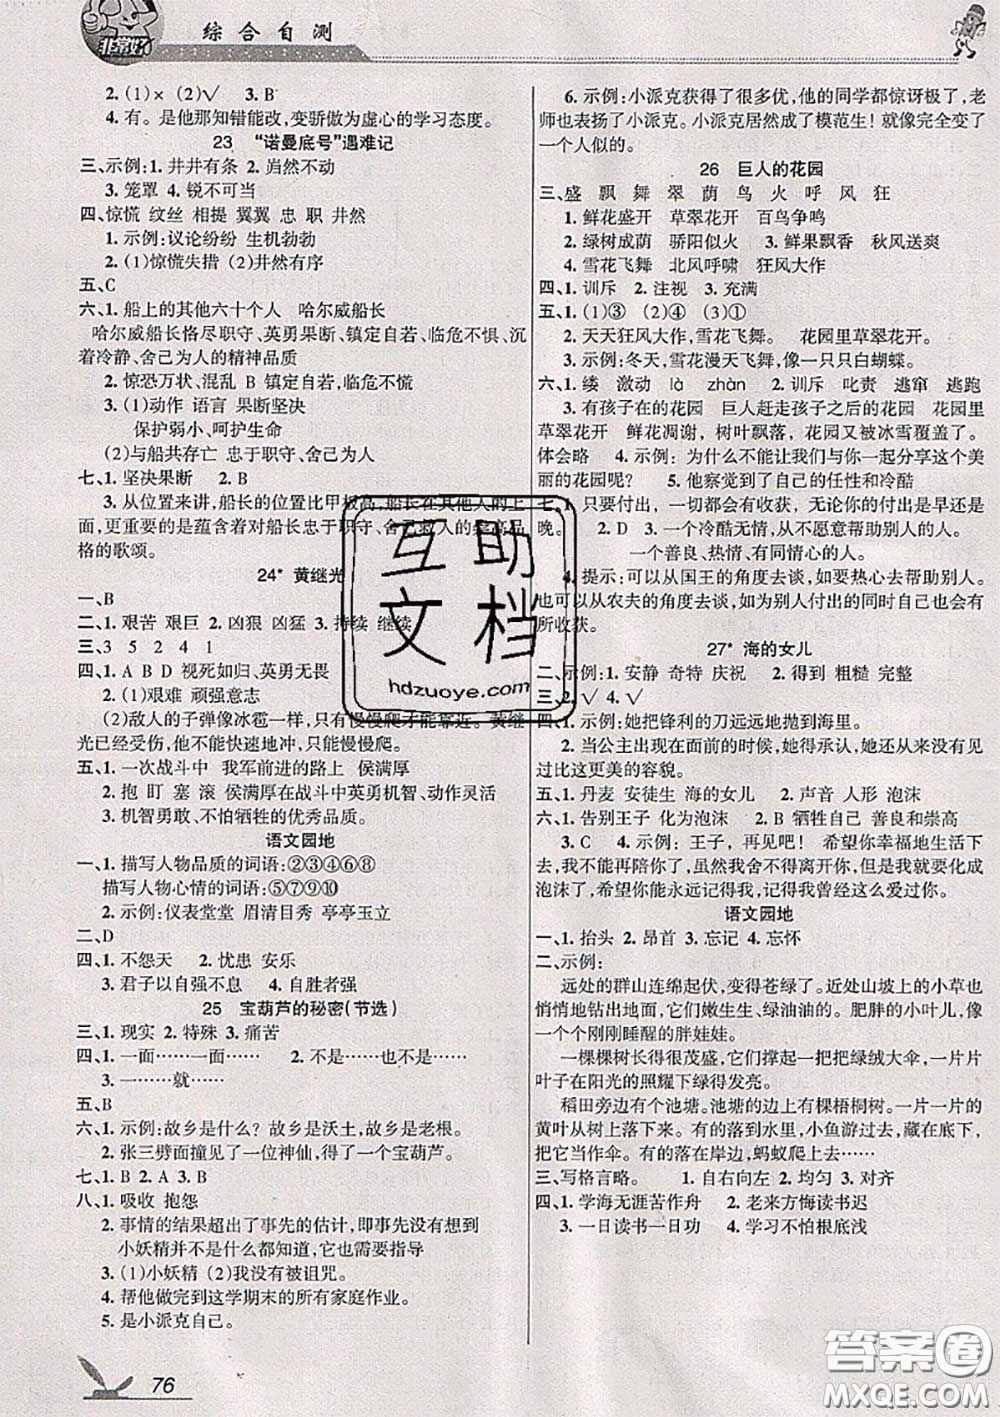 综合自测
非常好
2. (1)× (2)√ 3. B
4. 有。是他那知错能改,变骄傲为虚心的学习态度。
23 “诺曼底号”遇难记
三、示例:1. 井井有条 2. 岿然不动
3. 笼罩 4. 锐不可当
四、惊慌 纹丝 相提 翼翼 忠 职 井然
1. 示例:议论纷纷 生机勃勃
2. (1)惊慌失措 (2)井然有序
五、C
六、1. 船上的其他六十个人 哈尔威船长
哈尔威船长恪尽职守、英勇果断、镇定自若、临危不惧、沉
着冷静、舍己为人的精神品质
2. 惊恐万状、混乱 B 镇定自若,临危不慌
3. (1)动作 语言 果断坚决
保护弱小、呵护生命
(2)与船共存亡 忠于职守、舍己为人
七、1. 坚决果断 2. B
3. 从位置来讲,船长的位置比甲板高,船长在其他人的上
面,更重要的是蕴含着对船长忠于职守、舍己救人的崇高品
格的歌颂。
24* 黄继光
一、B
二、1. 艰苦 艰巨 2. 凶狠 凶猛 3. 持续 继续
三、3 5 2 4 1
四、1. A B D 视死如归、英勇无畏
2. (1)艰难 顽强意志
(2)敌人的子弹像冰雹一样,只有慢慢爬才能靠近。黄继
光已经受伤,他不能快速地冲,只能慢慢爬。
五、1. 一次战斗中 我军前进的路上 侯满厚
2. 抱 盯 塞 滚 侯满厚在战斗中英勇机智、动作灵活
3. 机智勇敢、不怕牺牲的优秀品质。
语文园地
一、1. 描写人物品质的词语:②③④⑥⑧
描写人物心情的词语:①⑤⑦⑨⑩
2. 示例:仪表堂堂 眉清目秀 亭亭玉立
二、D
四、1. 不怨天 2. 忧患 安乐
3. 君子以自强不息 4. 自胜者强
25 宝葫芦的秘密(节选)
三、1. 现实 2. 特殊 3. 痛苦
四、1. 一面……一面…… 2. 不是……也不是……
3. 一……就……
五、B
六、1. 示例:故乡是什么?故乡是沃土,故乡是老根。
2. 张三劈面撞见了一位神仙,得了一个宝葫芦。
七、1. B 2. A 3. B
八、1. 吸收 抱怨
2. 事情的结果超出了事先的估计,即事先没有想到
小妖精并不是什么都知道,它也需要指导
3. (1)小妖精 (2)我没有被诅咒。
4. 帮他做完到这学期末的所有家庭作业。
5. 是小派克自己。
76
6. 示例:小派克获得了很多优,他的同学都惊讶极了,老
师也表扬了小派克。小派克居然成了模范生!就像完全变了
一个人似的。
26 巨人的花园
三、盛 飘 舞 翠 荫 鸟 火 呼 风 狂
1. 鲜花盛开 草翠花开 百鸟争鸣
2. 绿树成荫 骄阳似火 3. 鲜果飘香 秋风送爽
4. 雪花飞舞 北风呼啸 狂风大作
四、1. 训斥 2. 注视 3. 充满
五、1. (1)③ (2)④ (3)①
2. 天天狂风大作,雪花飞舞。 花园里草翠花开。
3. 示例:冬天,雪花漫天飞舞,像一只只白蝴蝶。
六、1. 缕 激动 là zhàn 2. 训斥 叱责 逃窜 逃跑
3. 有孩子在的花园 巨人赶走孩子之后的花园 花园里
草翠花开 鲜花凋谢,树叶飘落,花园又被冰雪覆盖了。
体会略 4. 示例:为什么不能让我们与你一起分享这个美
丽的花园呢? 5. 他察觉到了自己的任性和冷酷
七、1. 只要付出,一切都会有收获,无论你的付出是早还是
晚。 2. D 3. 一个冷酷无情,从不愿意帮助别人的人。
一个善良、热情、有同情心的人。
4. 提示:可以从国王的角度去谈,如要热心于帮助别人。
也可以从农夫的角度去谈,如为别人付出的同时自己也会
有所收获。
27* 海的女儿
二、示例:1. 安静 奇特 庆祝 2. 得到 粗糙 完整
三、2. √ 4. √
四、1. 示例:她把锋利的刀远远地抛到海里。
2. 当公主出现在面前的时候,她得承认,她还从没有见
过比这更美的容貌。
五、1. 丹麦 安徒生 海的女儿 2. 声音 人形 泡沫
六、1. 告别王子 化为泡沫 2. B 牺牲自己 善良和崇高
3. C 4. 示例:王子,再见吧!希望你幸福地生活下
去,我不能再陪你了,虽然我舍不得离开你,但我就要化成
泡沫了,希望你能永远记得我,记得我曾经这么爱过你。
语文园地
一、1. 抬头 2. 昂首 3. 忘记 4. 忘怀
二、示例:
远处的群山连绵起伏,变得苍绿了。近处山坡上的小草也
悄悄地钻出地面,它们嫩生生、绿油油的。肥胖的小叶儿,像
一个个刚刚睡醒的胖娃娃。
一棵棵树长得很茂盛,它们撑起一把把绿绒大伞,一片片
叶子在阳光的照耀下绿得发亮。
稻田旁边有个池塘。池塘的边上有棵梧桐树。一片片的
黄叶从树上落下来。有的落到水里,小鱼游过去,藏在底下,把
它当作伞。有的落在岸边,蚂蚁爬上去……
三、写格言略。 1. 自右向左 2. 均匀 3. 对齐
四、1. 学海无涯苦作舟 2. 老来方悔读书迟
3. 一日读书一日功 4. 学习不怕根底浅
互助
文档
hdzuoye.com
答案圈
MXQE.COM